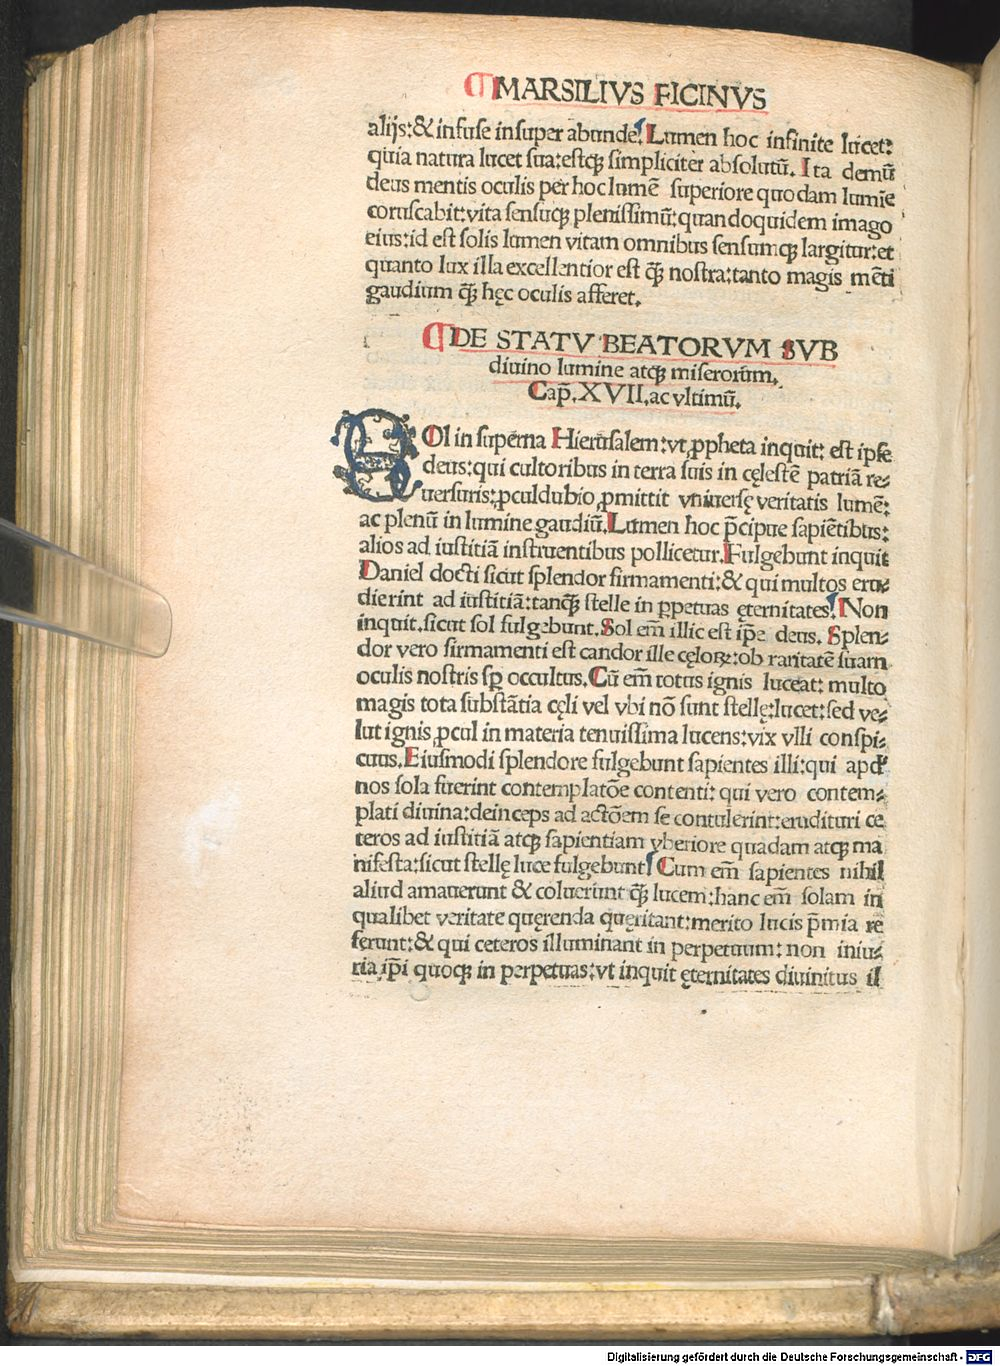 MARSILIVS FICINVS
alijs:& infuse insuper abunde. Lumen hoc infinite lucet:
quia natura lucet sua:estqꝫ simpliciter absolutū. Ita demū
deus mentis oculis per hoc lumē superiore quodam lumīe
coruscabit:vita sensuqꝫ plenissimū:quandoquidem imago
eius:id est solis lumen vitam omnibus sensumqꝫ largitur:et
quanto lux illa excellentior est qȝ̄ nostra:tanto magis mēti
gaudium qȝ̄ hęc oculis afferet.
DE STATV BEATORVM SVB
diuino lumine atqꝫ miserorum.
Cap̄. XVII. ac vltimū.
SOl in superna Hierusalem:vt ꝓpheta inquit: est ipse
deus:qui cultoribus in terra suis in cęlestē patriā re⸗
uersuris:ꝓculdubio ꝓmittit vniuersę veritatis lumē:
ac plenū in lumine gaudiū. Lumen hoc p̄cipue sapiētibus:
alios ad iustitiā instruentibus pollicetur. Fulgebunt inquit
Daniel docti sicut splendor firmamenti:& qui multos eru⸗
dierint ad iustitiā:tanqȝ̄ stelle in ꝑpetuas ęternitates. Non
inquit. sicut sol fulgebunt. Sol em̄ illic est ip̄e deus. Splen⸗
dor vero firmamenti est candor ille cęloꝝ:ob raritatē suam
oculis nostris sꝑ occultus. Cū em̄ totus ignis luceat: multo
magis tota substātia cęli vel vbi nō sunt stellę:lucet:sed ve⸗
lut ignis ꝓcul in materia tenuissima lucens:vix vlli conspi⸗
cuus. Eiusmodi splendore fulgebunt sapientes illi:qui apd'
nos sola fuerint contemplatōe contenti: qui vero contem⸗
plati diuina:deinceps ad actōem se contulerint:erudituri ce
teros ad iustitiā atqꝫ sapientiam vberiore quadam atqꝫ ma
nifesta:sicut stellę luce fulgebunt. Cum em̄ sapientes nihil
aliud amauerunt & coluerunt qȝ̄ lucem:hanc em̄ solam in
qualibet veritate quęrenda quęritant:merito lucis p̄mia re
ferunt:& qui ceteros illuminant in perpetuum: non iniu⸗
ria ip̄i quoqꝫ in perpetuas:vt inquit ęternitates diuinitus il
Digitalisierung gefördert durch die Deutsche Forschungsgemeinschaft - DFG